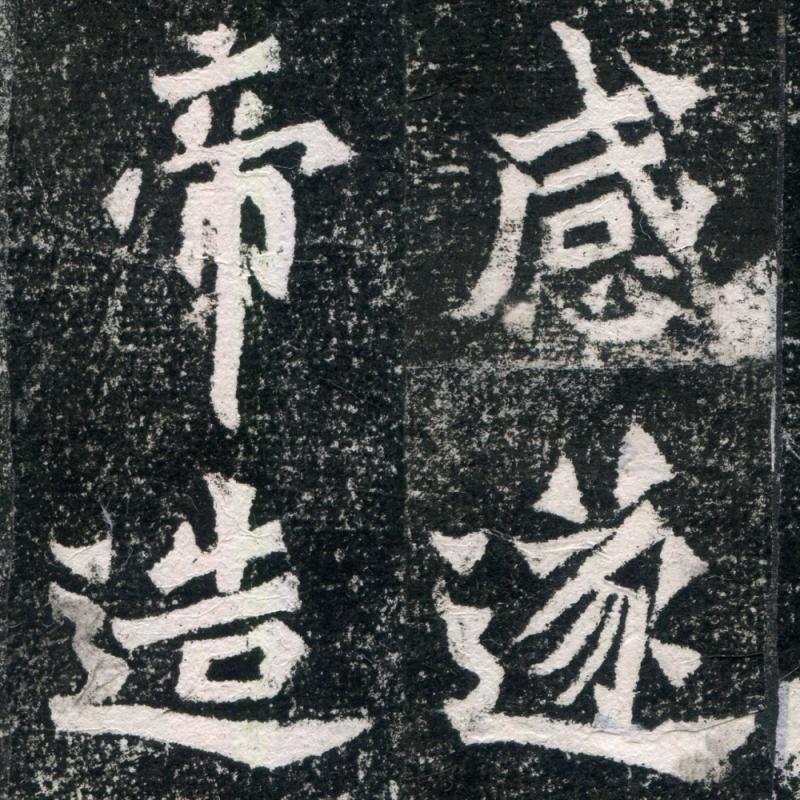 感遂
帝造